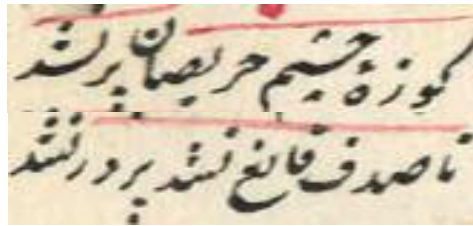 کوزهٔ چشم حریصان پر نشد
تا صدف قانع نشد پر در نشد